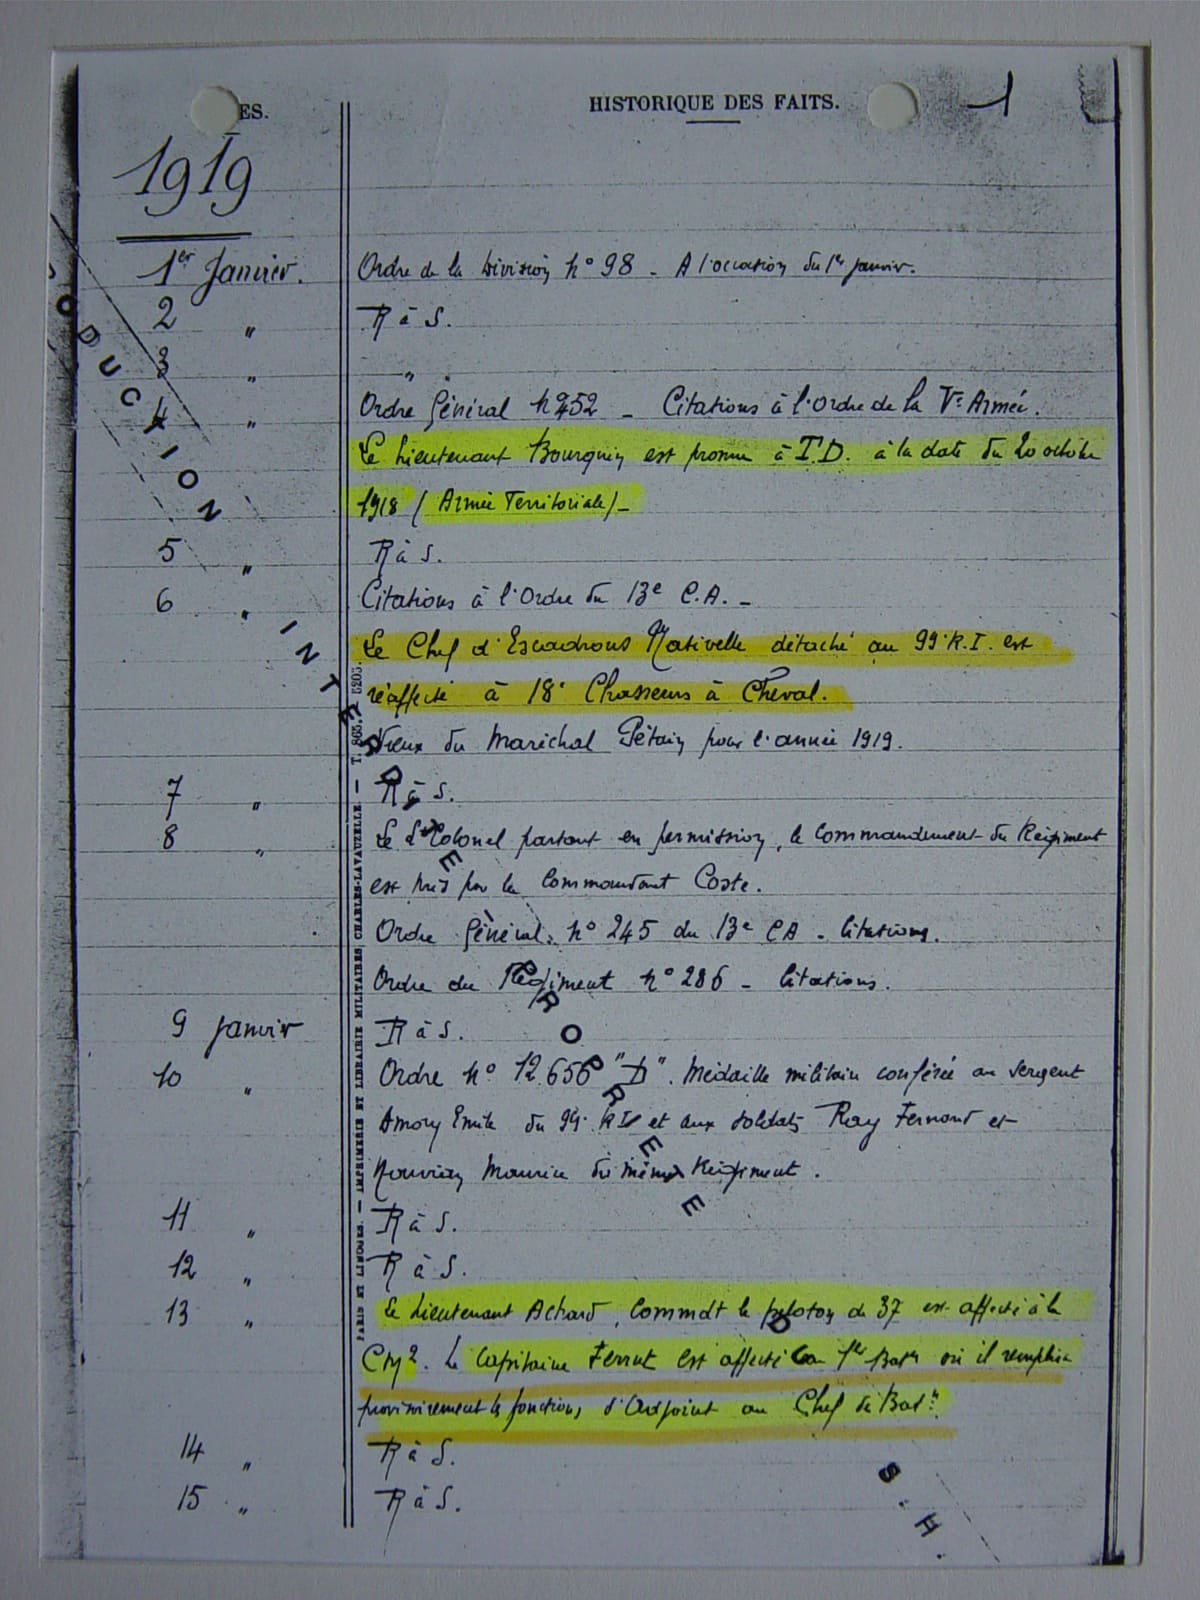 ES. HISTORIQUE DES FAITS. 1
1919
1er Janvier. Ordre de la Division n° 98 _ A l'occasion du 1er janvier.
2 " R à S.
3 " "
4 " Ordre Général n° 452 _ Citations à l'Ordre de la Ve Armée.
Le Lieutenant Bourguin est promu à T.D. à la date du 20 octobre
1918 (Armée Territoriale) _
5 " R à S.
6 " Citations à l'Ordre du 13e C.A. _
Le Chef d'Escadrons Nativelle détaché au 99e R.I. est
réaffecté à 18e Chasseurs à Cheval.
Vœux du Maréchal Pétain pour l'année 1919.
7 " R à S.
8 " Le Lt Colonel partant en permission, le Commandement du Régiment
est pris par le Commandant Coste.
Ordre Général n° 245 du 13e CA _ Citations.
Ordre du Régiment n° 286 _ Citations.
9 Janvier R à S.
10 " Ordre n° 12.656 "D". Médaille militaire conférée au Sergent
Amory Emile du 99e RI et aux soldats Ray Fernand et
Maurice du même Régiment.
11 " R à S.
12 " R à S.
13 " Le Lieutenant Achard, Commdt le peloton de 37 est affecté à la
CM2. Le Capitaine Ferrut est affecté au 1er Baton où il remplira
provisoirement les fonctions d'Adjoint au Chef de Baton.
14 " R à S.
15 " R à S.
PARIS ET LIMOGES. — IMPRIMERIE ET LIBRAIRIE MILITAIRES CHARLES-LAVAUZELLE. — T. 865. — 5205.
ODUCTION INTERDITE
PROPRIETE
D S.H.